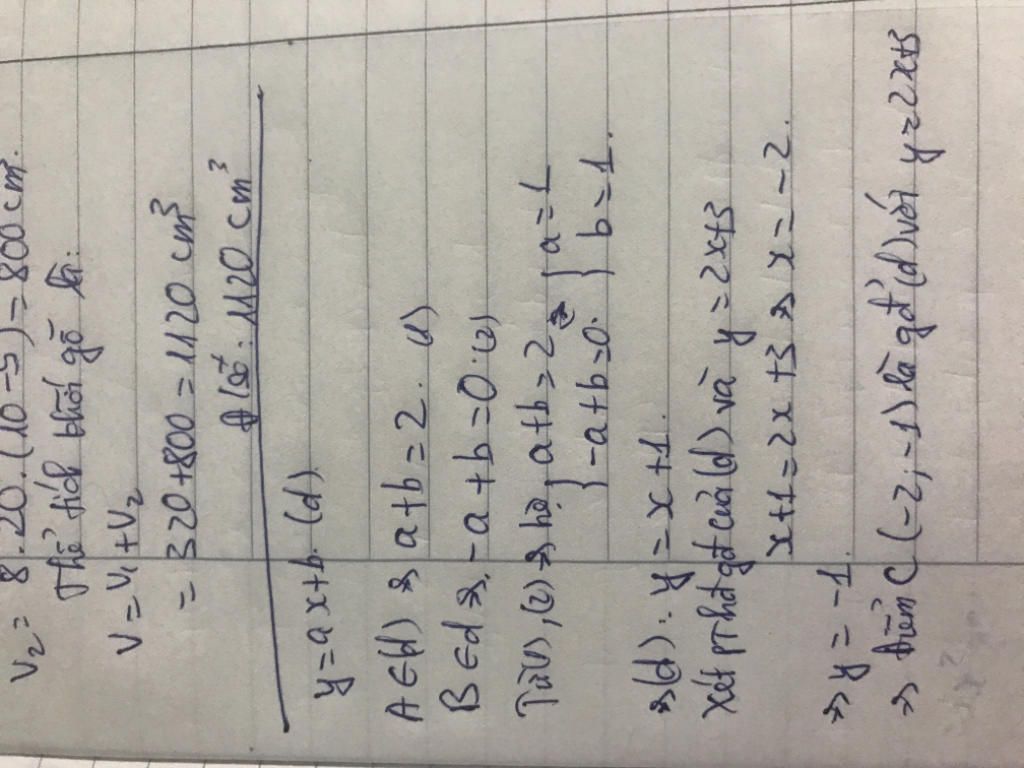 V₂ = 8.20.(10-5) = 800 cm³.
Thể tích khối gỗ là:
V = V₁ + V₂
= 320 + 800 = 1120 cm³
Đ/số: 1120 cm³
y = ax + b. (d)
A ∈ (d) => a + b = 2. (1)
B ∈ d => -a + b = 0. (2)
Từ (1), (2) => hệ { a + b = 2 <=> { a = 1
{ -a + b = 0. { b = 1.
=> (d): y = x + 1.
Xét pt hđgđ của (d) và y = 2x + 3
x + 1 = 2x + 3 => x = -2.
=> y = -1.
=> điểm C (-2; -1) là gđ' (d) với y = 2x + 3